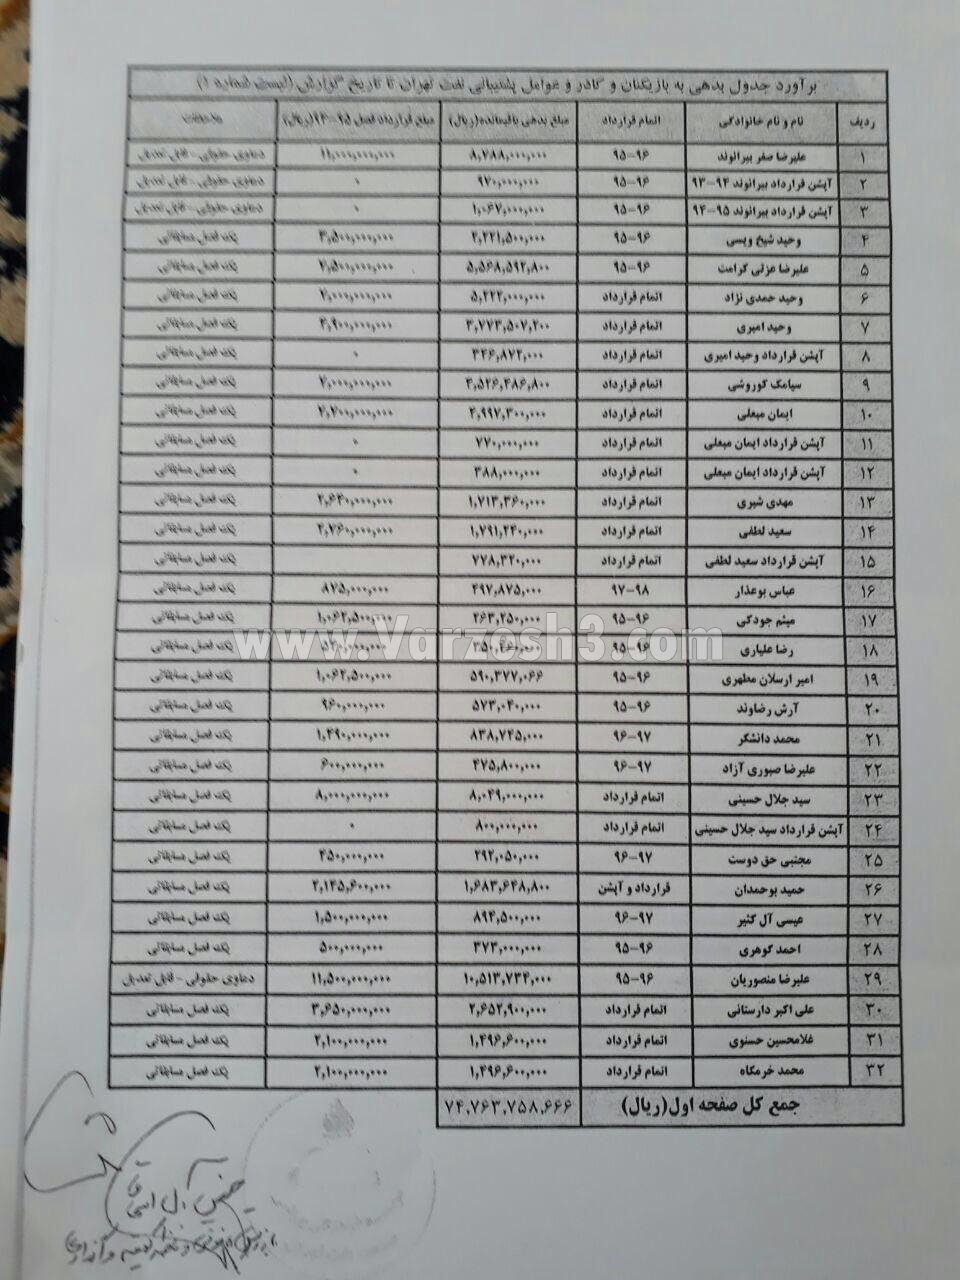 برآورد جدول بدهی به بازیکنان و کادر و عوامل پشتیبانی نفت تهران تا تاریخ گزارش (لیست شماره ۱)
ردیف نام و نام خانوادگی اتمام قرارداد مبلغ بدهی باقیمانده(ریال) مبلغ قرارداد فصل ۹۵-۹۴(ریال) ملاحظات
۱ علیرضا صفر بیرانوند ۹۵-۹۶ ۸,۷۸۸,۰۰۰,۰۰۰ ۱۱,۰۰۰,۰۰۰,۰۰۰ دعاوی حقوقی - قابل تعدیل
۲ آپشن قرارداد بیرانوند ۹۴-۹۳ ۹۵-۹۶ ۹۷۰,۰۰۰,۰۰۰ ۰ دعاوی حقوقی - قابل تعدیل
۳ آپشن قرارداد بیرانوند ۹۵-۹۴ ۹۵-۹۶ ۱,۰۶۷,۰۰۰,۰۰۰ ۰ دعاوی حقوقی - قابل تعدیل
۴ وحید شیخ ویسی ۹۵-۹۶ ۲,۲۲۱,۵۰۰,۰۰۰ ۳,۵۰۰,۰۰۰,۰۰۰ یک فصل مسابقاتی
۵ علیرضا عزتی کرامت ۹۵-۹۶ ۵,۵۶۸,۵۹۲,۸۰۰ ۲,۵۰۰,۰۰۰,۰۰۰ یک فصل مسابقاتی
۶ وحید حمدی نژاد اتمام قرارداد ۵,۲۲۲,۰۰۰,۰۰۰ ۲,۰۰۰,۰۰۰,۰۰۰ یک فصل مسابقاتی
۷ وحید امیری اتمام قرارداد ۳,۷۷۳,۵۰۷,۲۰۰ یک فصل مسابقاتی
۸ آپشن قرارداد وحید امیری اتمام قرارداد ۳۴۶,۸۷۲,۰۰۰ ۰ یک فصل مسابقاتی
۹ سیامک کوروشی اتمام قرارداد ۲,۰۰۰,۰۰۰,۰۰۰ یک فصل مسابقاتی
۱۰ ایمان مبعلی اتمام قرارداد ۲,۹۹۷,۳۰۰,۰۰۰ ۲,۲۰۰,۰۰۰,۰۰۰ یک فصل مسابقاتی
۱۱ آپشن قرارداد ایمان مبعلی اتمام قرارداد ۷۷۰,۰۰۰,۰۰۰ ۰ یک فصل مسابقاتی
۱۲ آپشن قرارداد ایمان مبعلی اتمام قرارداد ۳۸۸,۰۰۰,۰۰۰ ۰ یک فصل مسابقاتی
۱۳ مهدی شیری اتمام قرارداد ۱,۷۱۳,۳۶۰,۰۰۰ ۲,۶۴۰,۰۰۰,۰۰۰ یک فصل مسابقاتی
۱۴ سعید لطفی اتمام قرارداد ۱,۷۹۱,۲۴۰,۰۰۰ ۲,۷۶۰,۰۰۰,۰۰۰ یک فصل مسابقاتی
۱۵ آپشن قرارداد سعید لطفی اتمام قرارداد ۷۷۸,۳۲۰,۰۰۰ یک فصل مسابقاتی
۱۶ عباس بوعذار ۹۷-۹۸ ۴۹۷,۸۷۵,۰۰۰ ۸۷۵,۰۰۰,۰۰۰ یک فصل مسابقاتی
۱۷ میثم جودکی ۹۵-۹۶ ۲۶۳,۲۵۰,۰۰۰ ۱,۰۶۲,۵۰۰,۰۰۰ یک فصل مسابقاتی
www.Varzesh3.com
۱۸ رضا علیاری ۹۵-۹۶ یک فصل مسابقاتی
۱۹ امیر ارسلان مطهری ۹۵-۹۶ ۵۹۰,۳۷۷,۰۶۶ ۱,۰۶۲,۵۰۰,۰۰۰ یک فصل مسابقاتی
۲۰ آرش رضاوند ۹۵-۹۶ ۵۷۳,۰۴۰,۰۰۰ ۹۶۰,۰۰۰,۰۰۰ یک فصل مسابقاتی
۲۱ محمد دانشگر ۹۶-۹۷ ۸۳۸,۷۴۵,۰۰۰ ۱,۴۹۰,۰۰۰,۰۰۰ یک فصل مسابقاتی
۲۲ علیرضا صبوری آزاد ۹۶-۹۷ ۴۷۵,۸۰۰,۰۰۰ ۶۰۰,۰۰۰,۰۰۰ یک فصل مسابقاتی
۲۳ سید جلال حسینی اتمام قرارداد ۸,۰۴۹,۰۰۰,۰۰۰ ۸,۰۰۰,۰۰۰,۰۰۰ یک فصل مسابقاتی
۲۴ آپشن قرارداد سید جلال حسینی اتمام قرارداد ۸۰۰,۰۰۰,۰۰۰ ۰ یک فصل مسابقاتی
۲۵ مجتبی حق دوست ۹۶-۹۷ ۲۹۲,۰۵۰,۰۰۰ ۴۵۰,۰۰۰,۰۰۰ یک فصل مسابقاتی
۲۶ حمید بوحمدان قرارداد و آپشن ۱,۶۸۳,۶۴۸,۸۰۰ ۲,۱۴۵,۶۰۰,۰۰۰ یک فصل مسابقاتی
۲۷ عیسی آل کثیر ۹۶-۹۷ ۸۹۴,۵۰۰,۰۰۰ ۱,۵۰۰,۰۰۰,۰۰۰ یک فصل مسابقاتی
۲۸ احمد گوهری ۹۵-۹۶ ۳۷۳,۰۰۰,۰۰۰ ۵۰۰,۰۰۰,۰۰۰ یک فصل مسابقاتی
۲۹ علیرضا منصوریان ۹۵-۹۶ ۱۰,۵۱۳,۷۳۴,۰۰۰ ۱۱,۵۰۰,۰۰۰,۰۰۰ دعاوی حقوقی - قابل تعدیل
۳۰ علی اکبر دارستانی اتمام قرارداد ۲,۶۵۲,۹۰۰,۰۰۰ ۳,۶۵۰,۰۰۰,۰۰۰ یک فصل مسابقاتی
۳۱ غلامحسین حسنوی اتمام قرارداد ۱,۴۹۶,۶۰۰,۰۰۰ ۲,۱۰۰,۰۰۰,۰۰۰ یک فصل مسابقاتی
۳۲ محمد خرمگاه اتمام قرارداد ۱,۴۹۶,۶۰۰,۰۰۰ ۲,۱۰۰,۰۰۰,۰۰۰ یک فصل مسابقاتی
جمع کل صفحه اول(ریال) ۷۴,۷۶۳,۷۵۸,۶۶۶